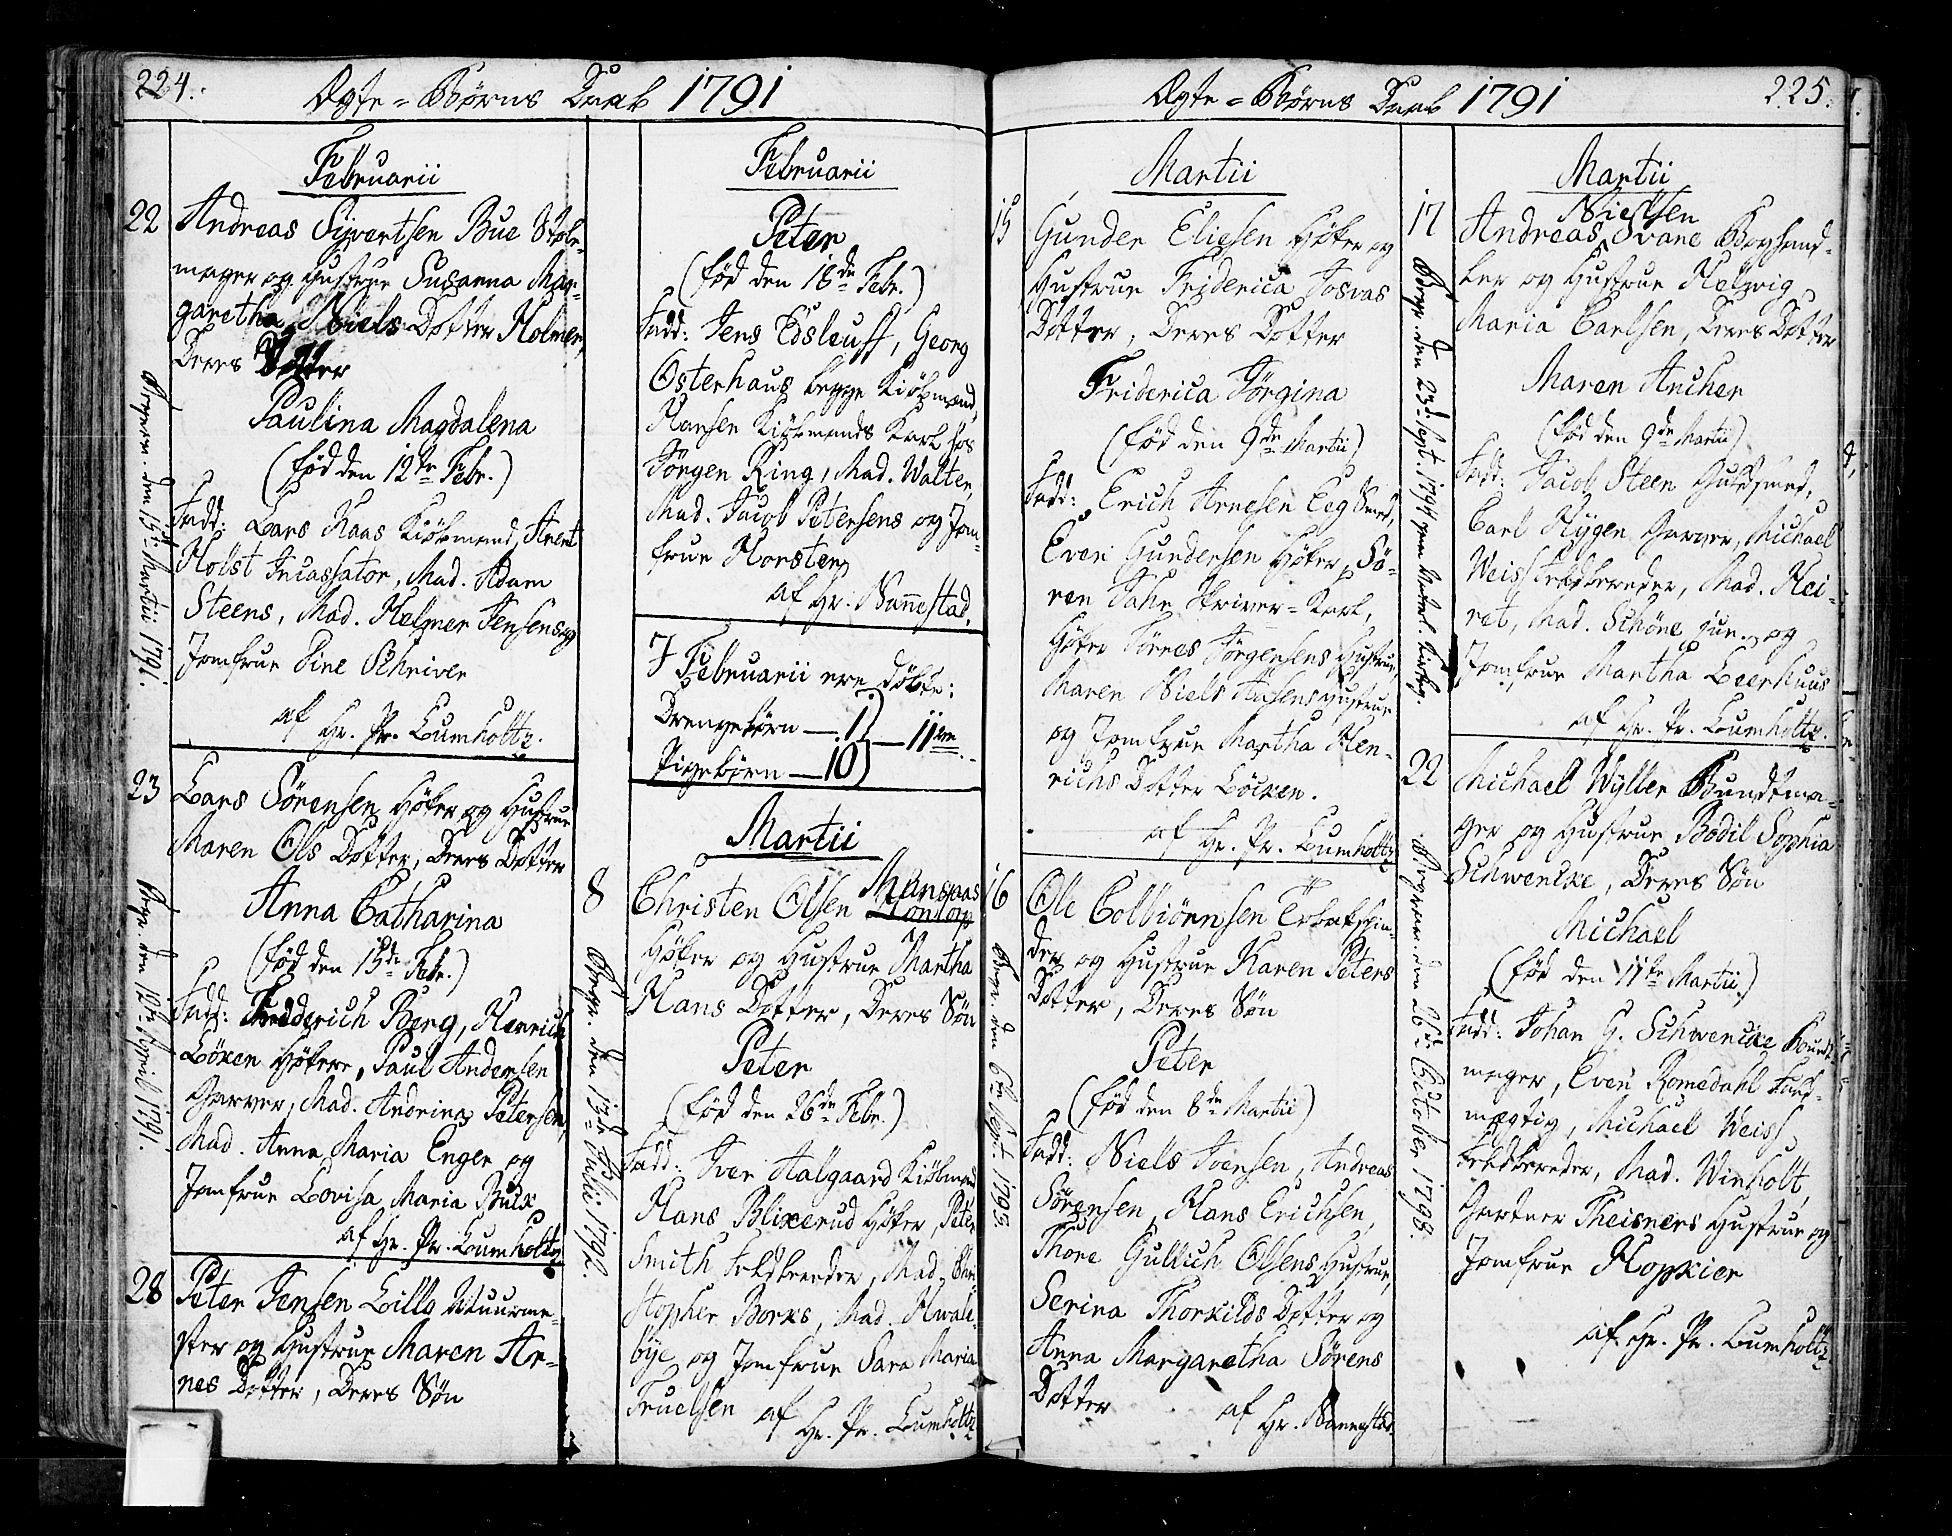 224.
Ægte = Børns Daab 1791
Februarii
22
Andreas Sivertsen Bue Stole-
mager og Hustrue Susanna Mar-
garetha Niels Dotter Holmer,
Deres Dotter
Paulina Magdalena
(fød den 12te Febr.)
Fadd: Lars Haas Kiøbmand, Arent
Holst Incassator, Mad. Adam
Steens, Mad. Helmer Jensens og
Jomfrue Sine Schriver
af Hr. Pr. Lumholtz.
den 15de Martii 1791.
23
Lars Sörensen Høker og Hustrue
Maren Ols Dotter, Deres Dotter
Anna Catharina
(fød den 15de Febr.)
Fadd: Friderich Berg, Henrich
Löken Høkere, Paul Andersen
Garver, Mad. Andrina Petersen,
Mad. Anna Maria Enger og
Jomfrue Lovisa Maria Bulx
af Hr. Pr. Lumholtz
Begr. den 12te April 1791.
28
Peter Jensen Lille Muurme-
ster og Hustrue Maren Ar-
nes Dotter, Deres Søn
Februarii
Peter
(fød den 18de Febr.)
Fadd: Jens Edsleuff, Georg
Osterhaus begge Kiøbmænd,
Hansen Kiøbmands Karl hos
Jörgen Ring, Mad. Walter,
Mad. Jacob Petersens og Jom-
frue Horster
af Hr. Nannestad.
I Februarii ere döbte:
Drengebörn — 1
Pigebörn — 10
— 11ve
Martii
8
Mansaas
Christen Olsen Hontorp
Höker og Hustrue Martha
Hans Dotter, Deres Søn
Peter
(fød den 26de Febr.)
Fadd: Iver Aalgaard Kiöbmand
Hans Blixerud Høker, Peter
Smith Feldbereder, Mad. Chri-
stopher Borks, Mad. Hvale-
bye og Jomfrue Sara Maria
Truelsen af Hr. Pr. Lumholtz
Begr. den 13de Julii 1792.
225.
Ægte = Børns Daab 1791
Martii
15
Gunder Eliesen Høker og
Hustrue Friderica Josvas
Dotter, Deres Dotter
Friderica Jörgina
(fød den 9de Martii)
Fadd: Erich Arnesen Eeg Smed,
Even Gundersen Høker, Sö-
ren Jahr Skriver = Karl,
Høker Törres Jörgensens Hustrue,
Maren Niels Aasens Hustrue
og Jomfrue Martha Hen-
richs Dotter Löcken.
af Hr. Pr. Lumholtz
16
Ole Colbiörnsen Tobakspin-
der og Hustrue Karen Peters
Dotter, Deres Søn
Peter
(fød den 8de Martii)
Fadd: Niels Ivensen, Andreas
Sörensen, Hans Erichsen,
Thore Gullich Olsens Hustrue,
Serina Thorkilds Dotter og
Anna Margaretha Sörens
Dotter
af Hr. Nannestad.
Begr. den 6te Sept. 1795
Martii
17
Nielsen
Andreas Svane Boghand-
ler og Hustrue Helvig
Maria Carlsen, Deres Dotter
Maren Ancher
(fød den 9de Martii)
Fadd: Jacob Steen Guldsmed,
Carl Hygen Garver, Michael
Weiss Feldbereder, Mad. Hei-
ret, Mad. Schöne jun. og
Jomfrue Martha Leerhuus
af Hr. Pr. Lumholtz.
Begr. den 23de Sept. 1794
22
Michael Wyller Bundtma-
ger og Hustrue Bodil Sophia
Schwencke, Deres Søn
Michael
(fød den 11te Martii)
Fadd: Johan G. Schwencke Bundt-
mager, Even Romedahl Fuld-
mægtig, Michael Weiss
Feldbereder, Mad. Winholt,
Gartner Theisners Hustrue og
Jomfrue Hopkier
af Hr. Pr. Lumholtz
den 26de October 1798.